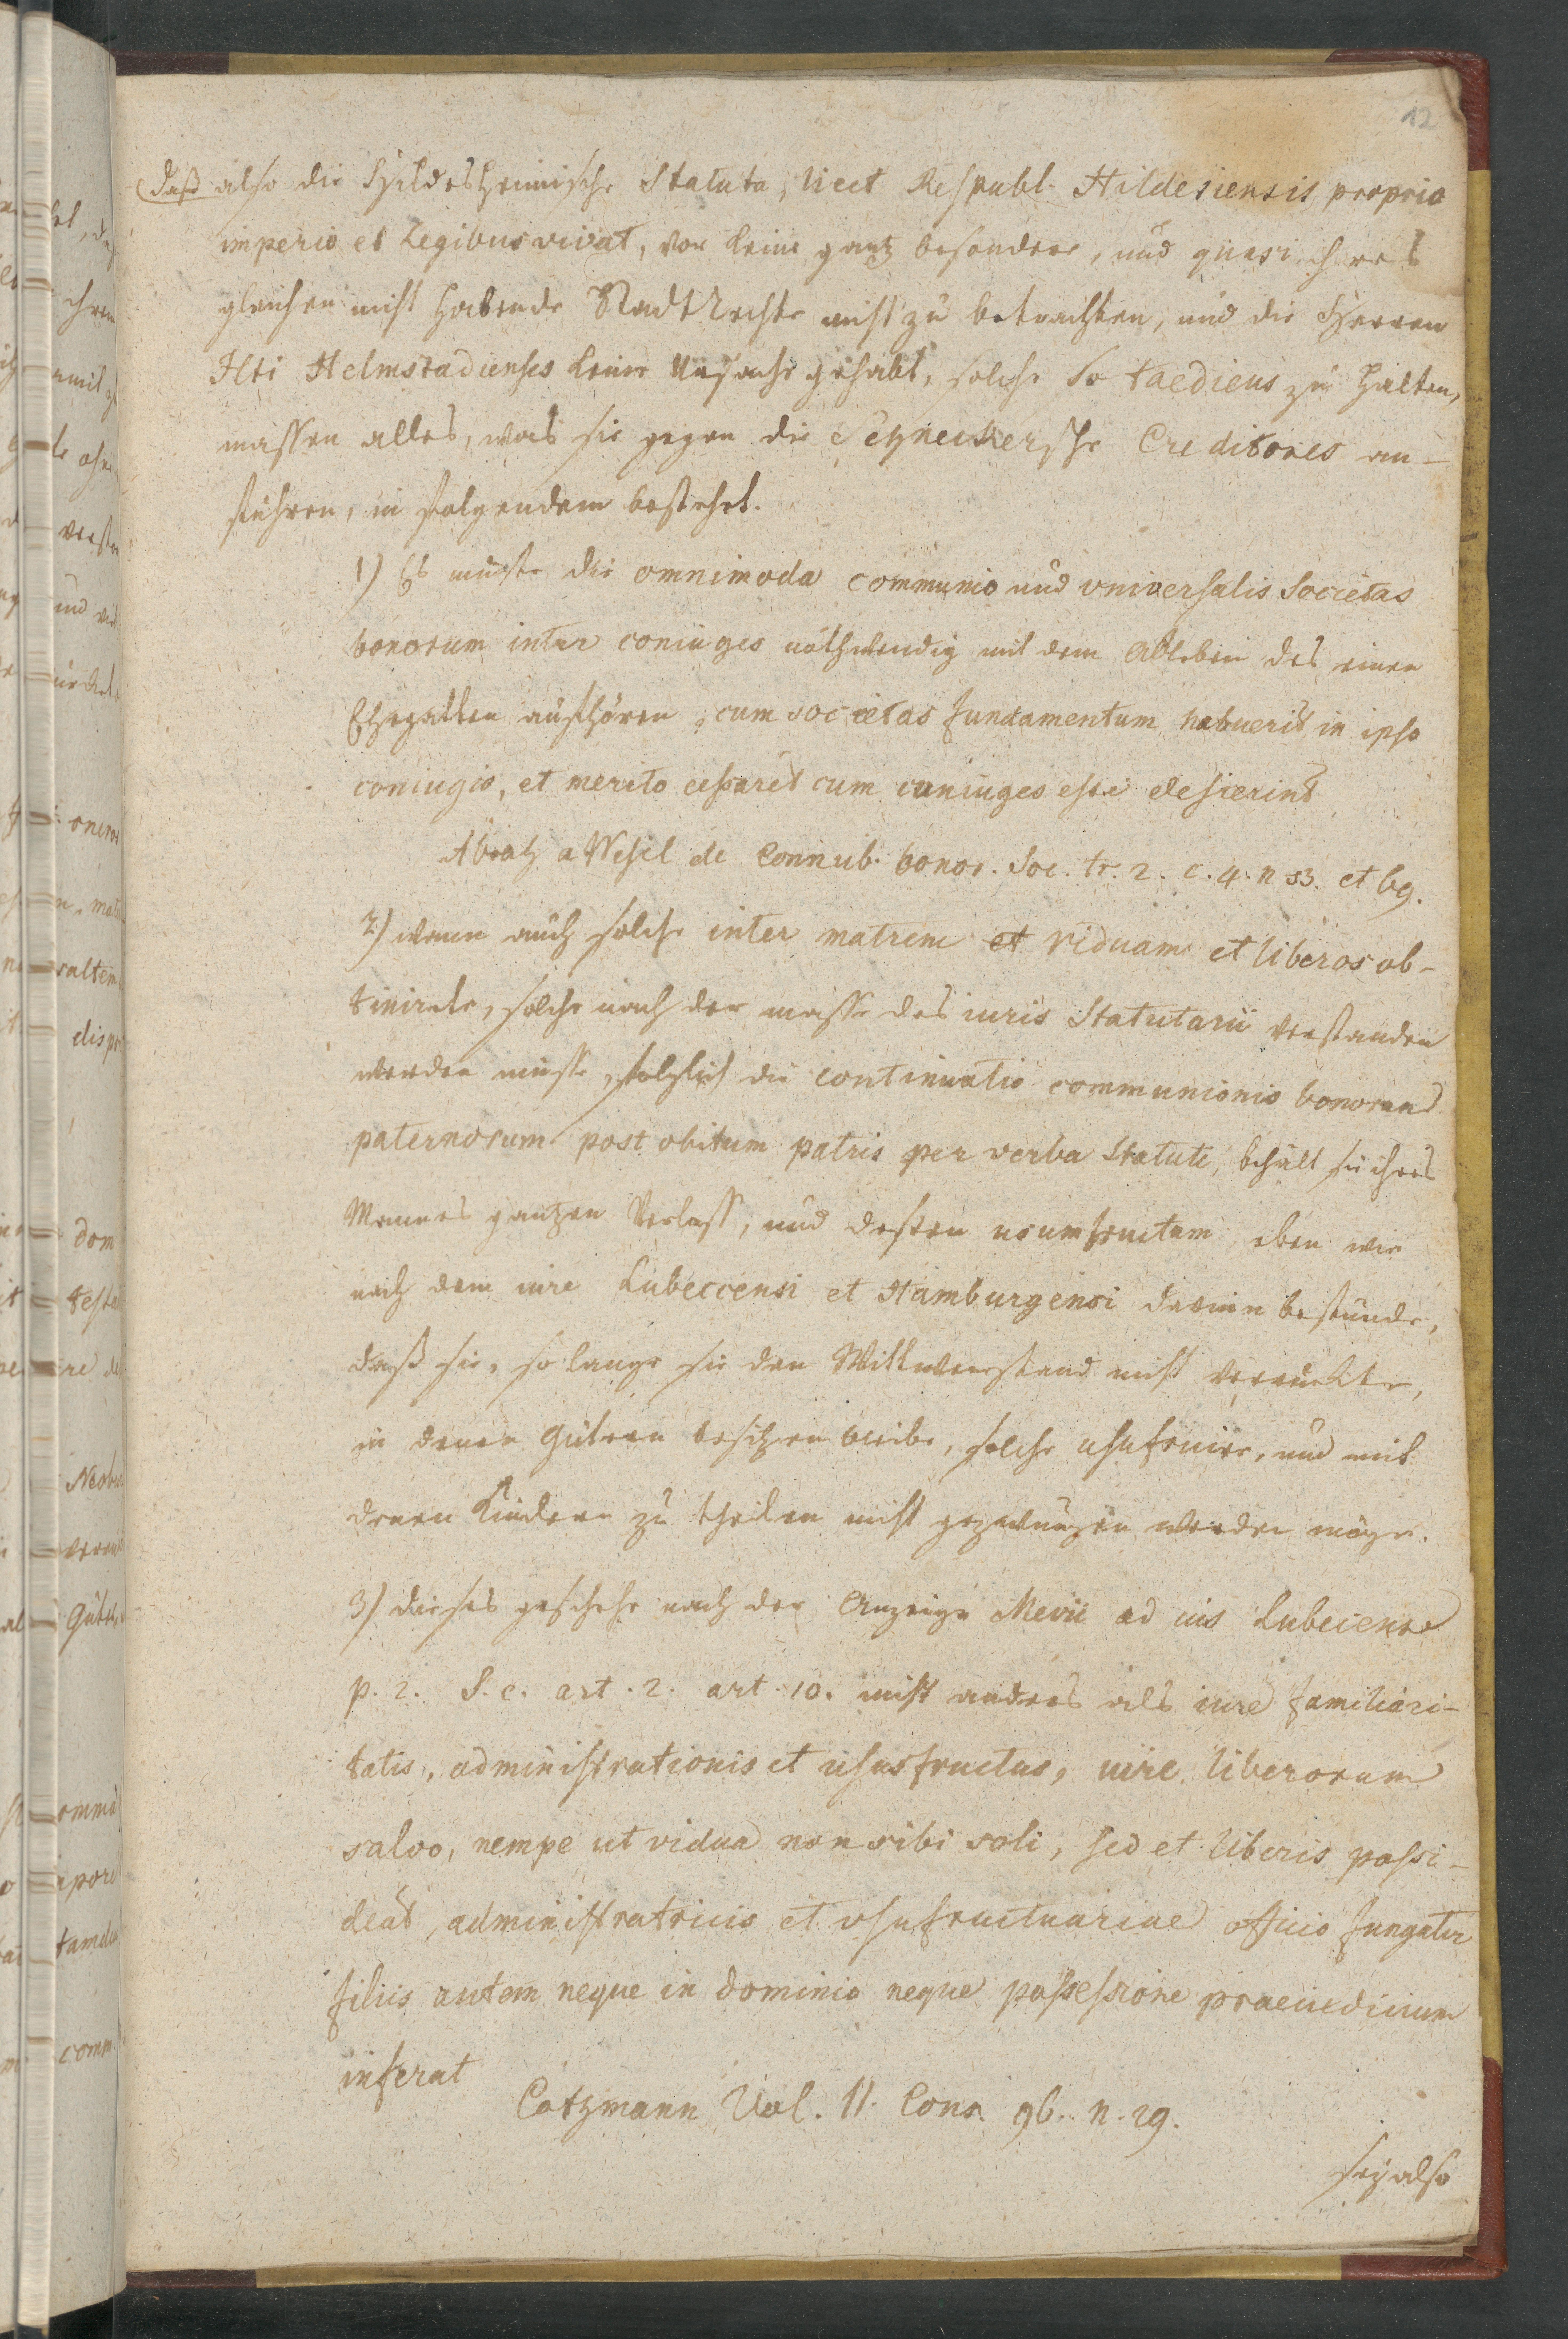 12
daß also die Hildesheimische Statuta, licet Respubl. Hildesiensis proprio
imperio et Legibus vivat, vor keine gantz besondere, und quasi ihres
gleichen nicht habende Stadt Rechte nicht zu betrachten, und die Herren
Icti Helmstadienses keine Ursache gehabt, solche so taediens zu halten,
massen alles, was sie gegen die Schneckersche Creditores an-
führen, in folgendem bestehet.
1) Es müste die omnimoda communio und vniversalis Societas
bonorum inter coniuges nothwendig mit dem Ableben des einen
Ehegatten aufhören, cum societas fundamentum habuerit in ipso
coniugio, et merito cessaret cum coniuges esse desierint
Abrah a Wesel de Connub. bonor. Soc. tr. 2. c. 4. n 53. et 69.
2) wann auch solche inter matrem et viduam et liberos ob-
tinirete, solche nach der masse des iuris Statutarii verstanden
werden müsse, folglich die continuatio communionis bonorum
paternorum post obitum patris per verba Statuti, behält sie ihres
Mannes gantzen Verlass, und dessen usumfructum eben wie
nach dem iure Lubeccensi et Hamburgensi darinn bestünde,
daß sie, so lange sie den Wittwenstand nicht verrückte,
in denen Gütern besitzen bleibe, solche usufruire, und mit
denen Kindern zu theilen nicht gezwungen werden möge.
3) dieses geschehe nach der Anzeige Mevii ad ius Lubecense
p. 2. S. c. art. 2. art. 10. nicht anders als iure familiari-
tatis, administrationis et ususfructus, iure liberorum
salvo, nempe ut vidua non sibi soli, sed et liberis possi-
deat, administratricis et vsufructuariae officio fungatur
filiis autem neque in dominio neque possessione praeiudicium
inferat
Cotzmann Vol. 11. Cons. 96. n. 29.
sey also